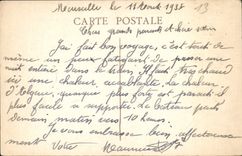 Marseille le 18 Août 1938 13
CARTE POSTALE
Chers grands parents et chère
J'ai fait bon voyage, c'est tout de
même un peu fatigant de passer une
nuit entière dans le train. Il fait très chaud
ici une chaleur accablante. La chaleur
d'Algérie, quoique plus forte est plus
facile a supporter. Le bateau part
demain matin vers 10 heures.
Je vous embrasse bien affectueuse
ment Votre Maurice